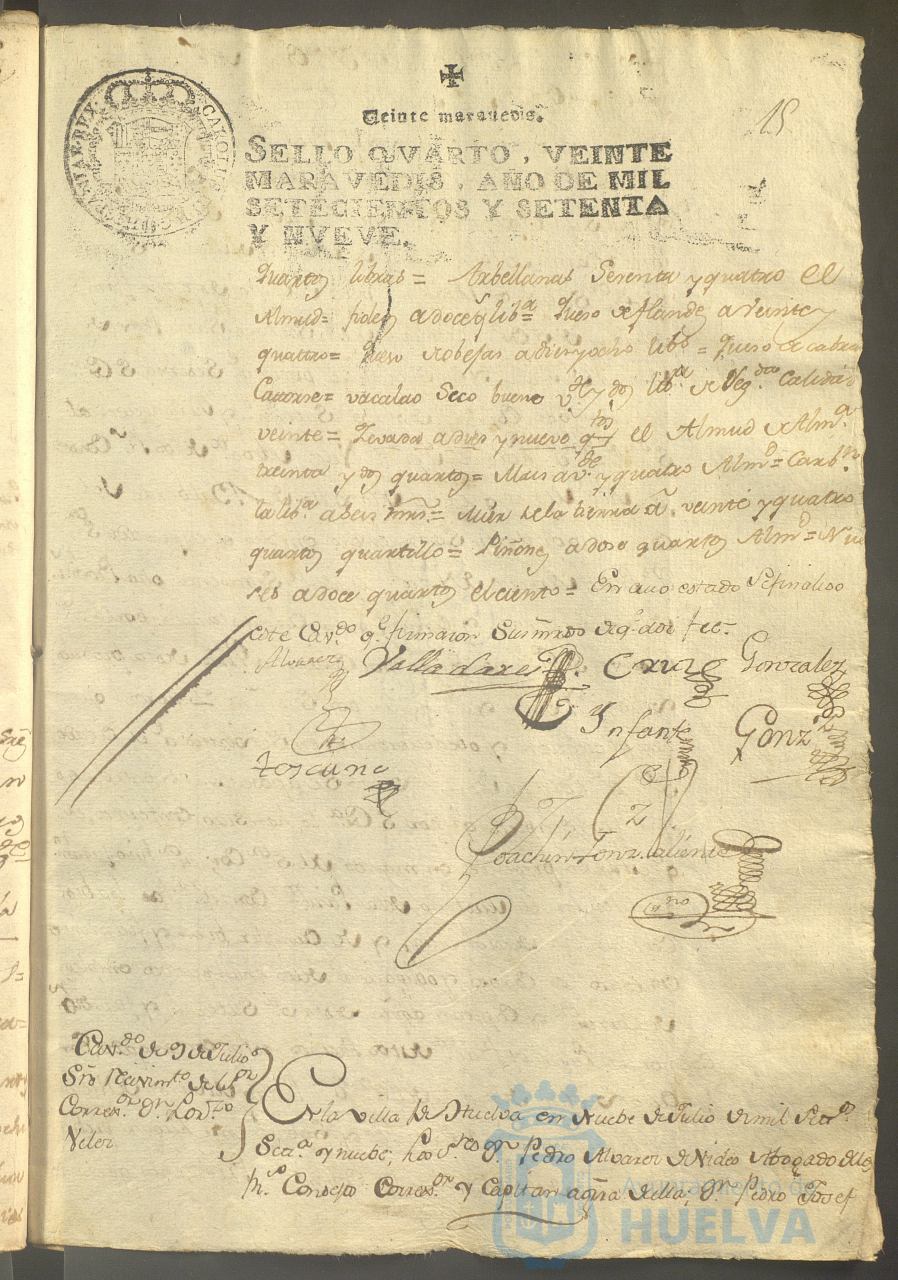 15
Veinte maravedis.
SELLO QVARTO, VEINTE
MARAVEDIS, AÑO DE MIL
SETECIENTOS Y SETENTA
Y NVEVE.
CAROLUS
HISPANIAR. REX.
quartos libras = Arbellanas Setenta y quatro el
Almud = fideos a doce qs lib.a Queso de flandes a Veinte y
quattro = Queso de obejas a diez y ocho lib.s = queso de cabra
Catorse = vacalao Seco bueno v.te y dos lib.a de Seg.da Calidad
veinte = Zevada a dies y nueve q.tos el Almud de Alm.a
treinta y dos quartos = Mais a v.te y quatro Alm.d = Carb.n
la lib.a a Seis mrs = Miel de la tierra a veinte y quatro
quartos quartillo = Piñones a dose quartos Alm.d = Nue
ses a doce quartos el ciento = En cuio estado Se finalisó
este Cav.do q.e firmaron Sus mrds de q.e doi fee.
Alvarez Valladares Cruz Gonzalez
Infante Gonz.z
toscano
Joachin Gonz.
Cav.do de 9 de Julio
Sre Recivim.to de
Correx.or Dn Lor.zo
Velez
En la Villa de Huelva en Nuebe de Julio de mil Sete.os
Sete.a y nuebe, Los S.res Dn Pedro Alvarez de Abogado de los
R.s Consejos Correx.or y Capitan a Gra de ella, Dn Pedro Josef
Ayuntamiento de
HUELVA